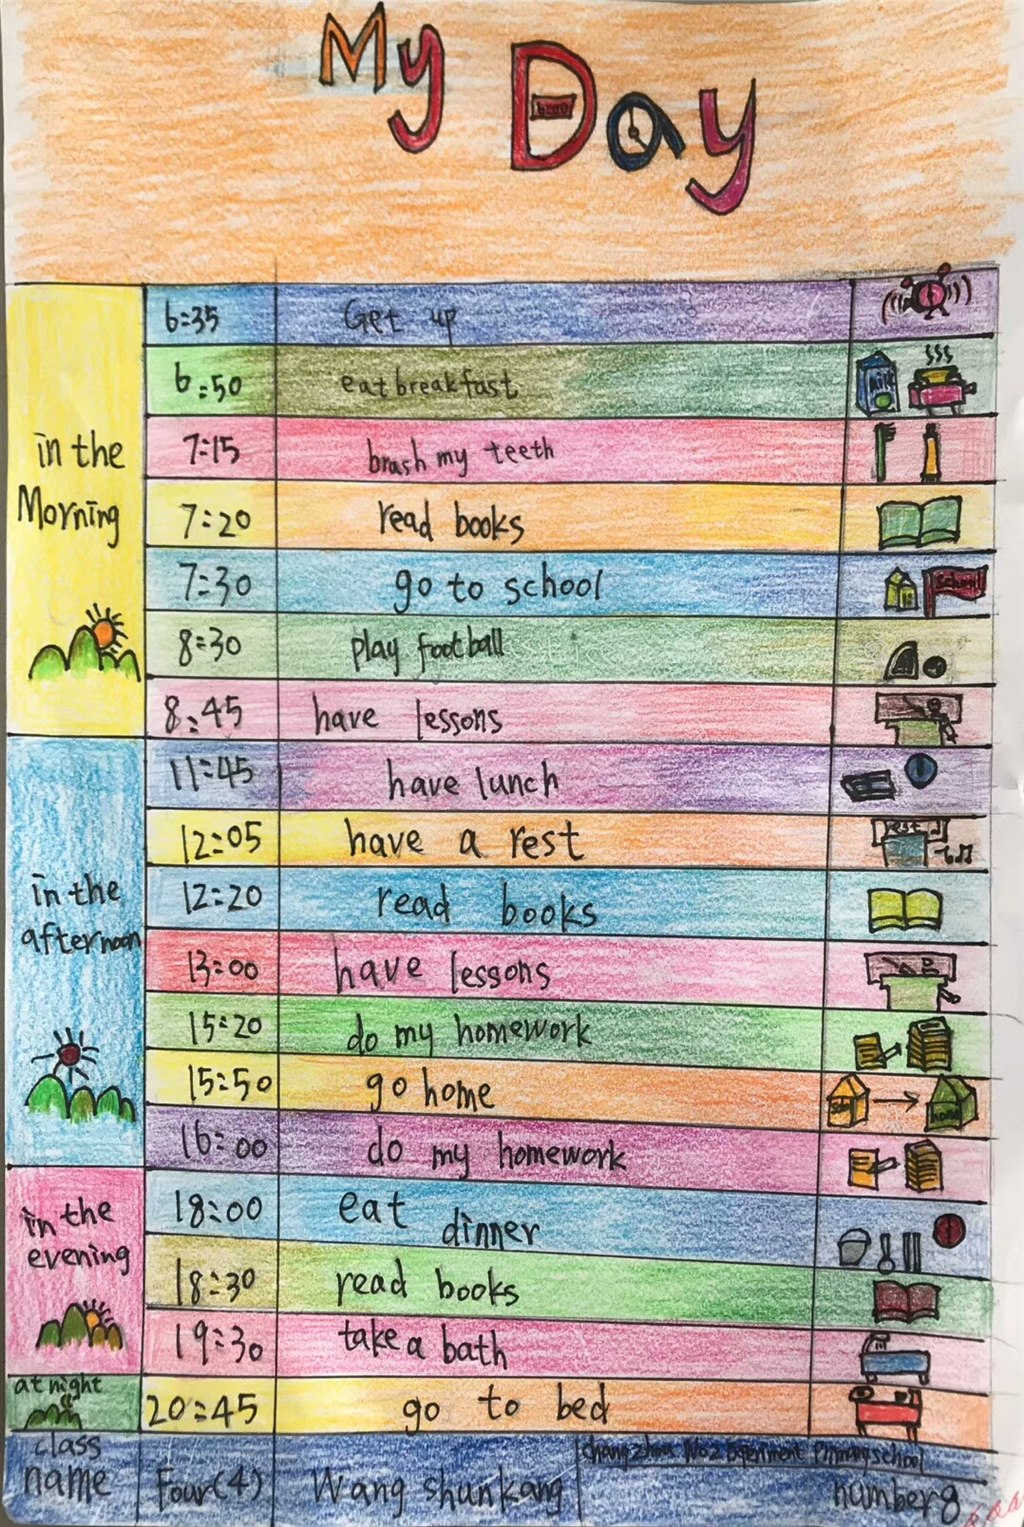 My Day
in the
Morning
6:35 Get up
6:50 eat breakfast
milk
7:15 brash my teeth
7:20 read books
7:30 go to school
School
8:30 play football
8:45 have lessons
in the
afternoon
11:45 have lunch
12:05 have a rest
rest
12:20 read books
13:00 have lessons
15:20 do my homework
15:50 go home
home
16:00 do my homework
in the
evening
18:00 eat dinner
18:30 read books
19:30 take a bath
at night
20:45 go to bed
class
name Four(4) Wang shunkang
Changzhou No.2 Experiment Primary school
number8